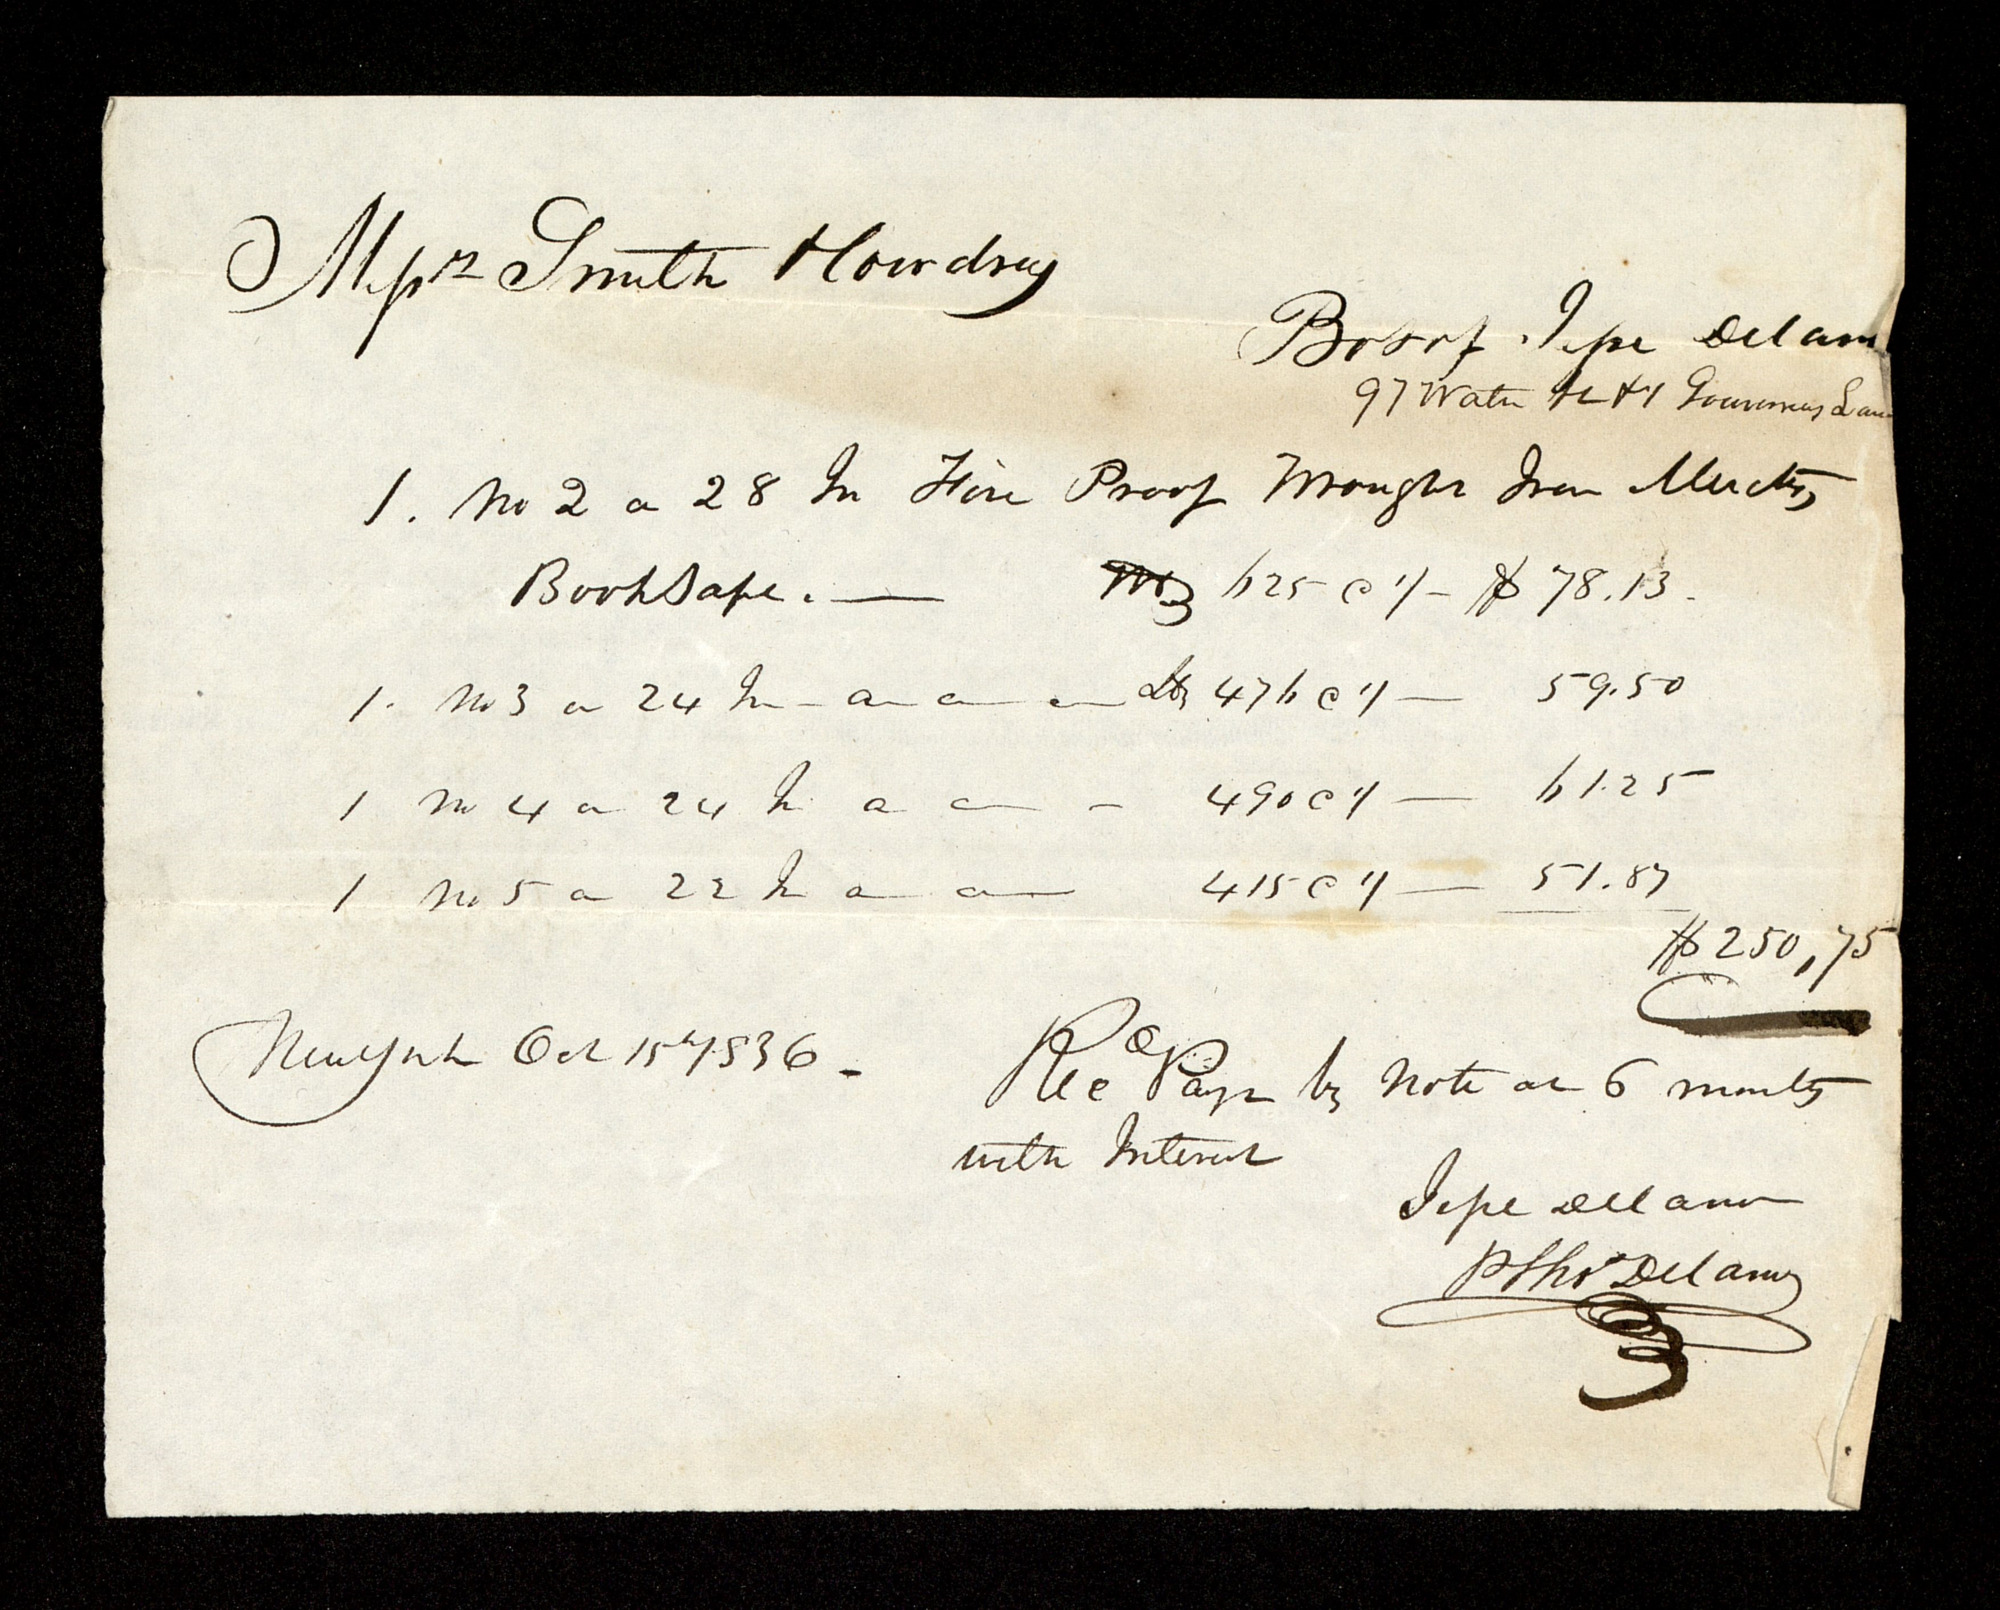 Messrs Smith Howdrey
Bot of Jesse Delan
97 Water St & 1 Gouverneur Lan
1. No 2 a 28 In Fire Proof Wrought Iron Merchts
Book Safe. — 625 @ 1/- $ 78.13
1. No 3 a 24 In - a a a lbs 476 @ 1/ — 59.50
1 No 4 a 24 In a a - 490 @ 1/ — 61.25
1 No 5 a 22 In a a 415 @ 1/ — 51.87
$ 250,75
New York Oct 15th 1836 -
Rec Payt by Note at 6 months
with Interest
Jesse Delano
P Thos Delano